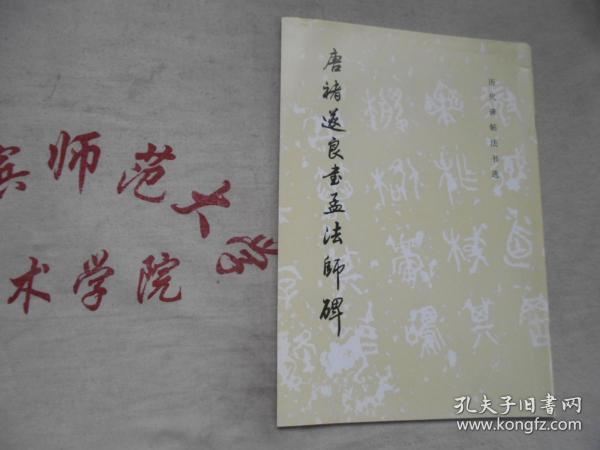 历代碑帖法书选
唐褚遂良书孟法師碑
滨师范大学
术学院
孔夫子旧书网
www.kongfz.com